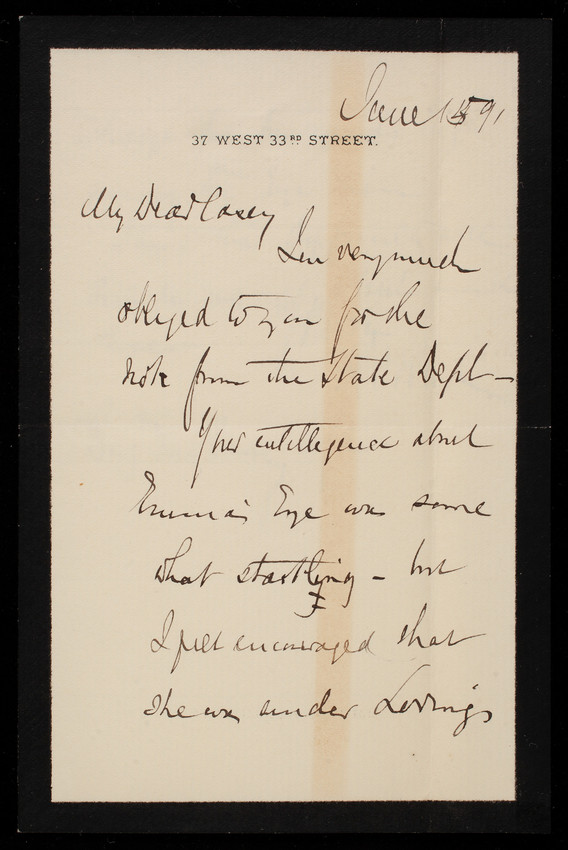 June 15 91
37 WEST 33RD STREET.
My Dear Casey
I'm very much
obliged to you for the
note from the State Dept -
Your intelligence about
Emma's Eye was some
what startling - but
I felt encouraged that
she was under Loring's